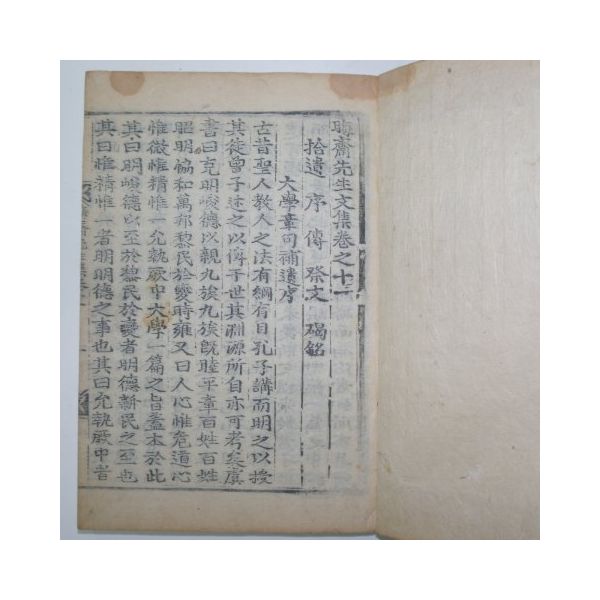 晦齋先生文集卷之十二
拾遺 序 傳 祭文 碣銘
大學章句補遺序
古昔聖人敎人之法有綱有目孔子講而明之以授
其徒曾子述之以傳于世其淵源所自亦可考矣虞
書曰克明峻德以親九族九族旣睦平章百姓百姓
昭明協和萬邦黎民於變時雍又曰人心惟危道心
惟微惟精惟一允執厥中大學一篇之旨蓋本於此
其曰明峻德以至於黎民於變者明德新民之至也
其曰惟精惟一者明明德之事也其曰允執厥中者